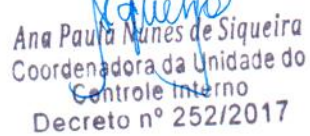 Ana Paula Nunes de Siqueira
Coordenadora da Unidade do
Controle Interno
Decreto nº 252/2017